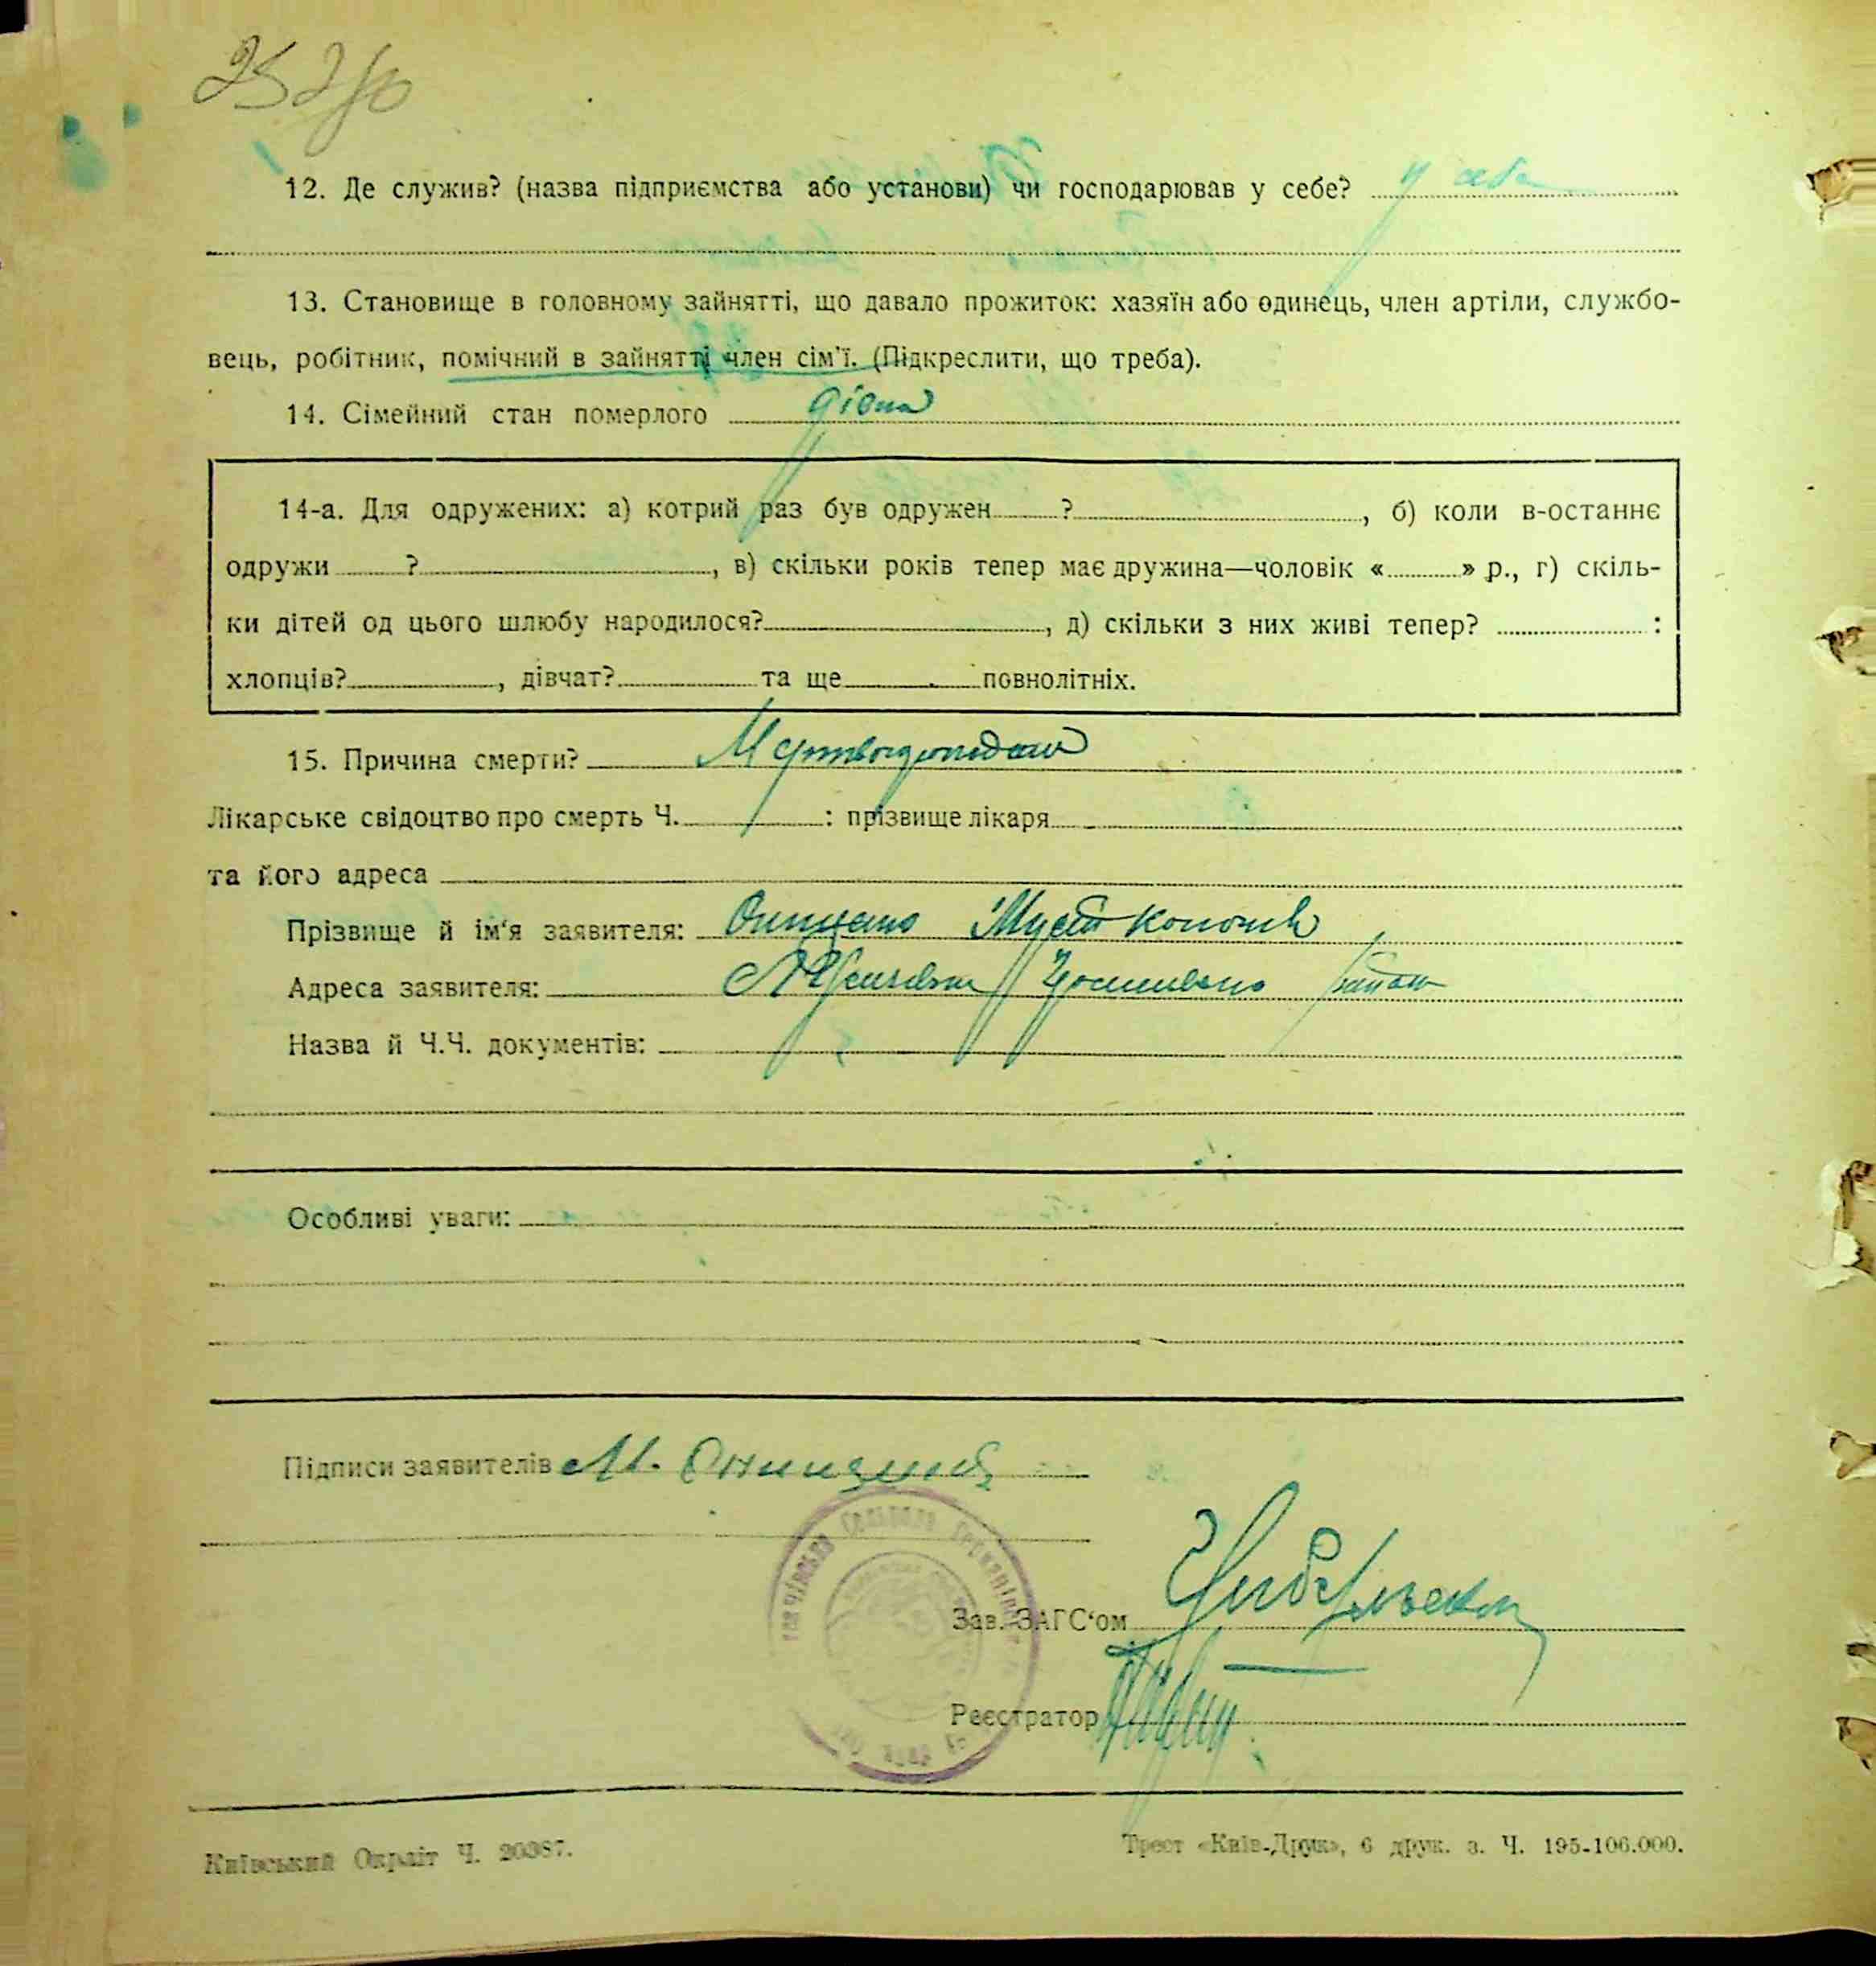 12. Де служив? (назва підприємства або установи) чи господарював у себе? у себе
13. Становище в головному зайнятті, що давало прожиток: хазяїн або одинець, член артіли, службо-
вець, робітник, помічний в зайнятті член сім'ї. (Підкреслити, що треба).
14. Сімейний стан померлого дівча
14-а. Для одружених: а) котрий раз був одружен ? , б) коли в-останнє
одружи ? , в) скільки років тепер має дружина—чоловік « » р., г) скіль-
ки дітей од цього шлюбу народилося? , д) скільки з них живі тепер? :
хлопців? , дівчат? та ще повнолітніх.
15. Причина смерти?
Лікарське свідоцтво про смерть Ч. : прізвище лікаря
та його адреса
Прізвище й ім'я заявителя: Онищенко
Адреса заявителя:
Назва й Ч.Ч. документів:
Особливі уваги:
Підписи заявителів М.
Зав. ЗАГС'ом
Реєстратор
Київський Окрліт Ч. 20387.
Трест «Київ-Друк», 6 друк. з. Ч. 195-106.000.